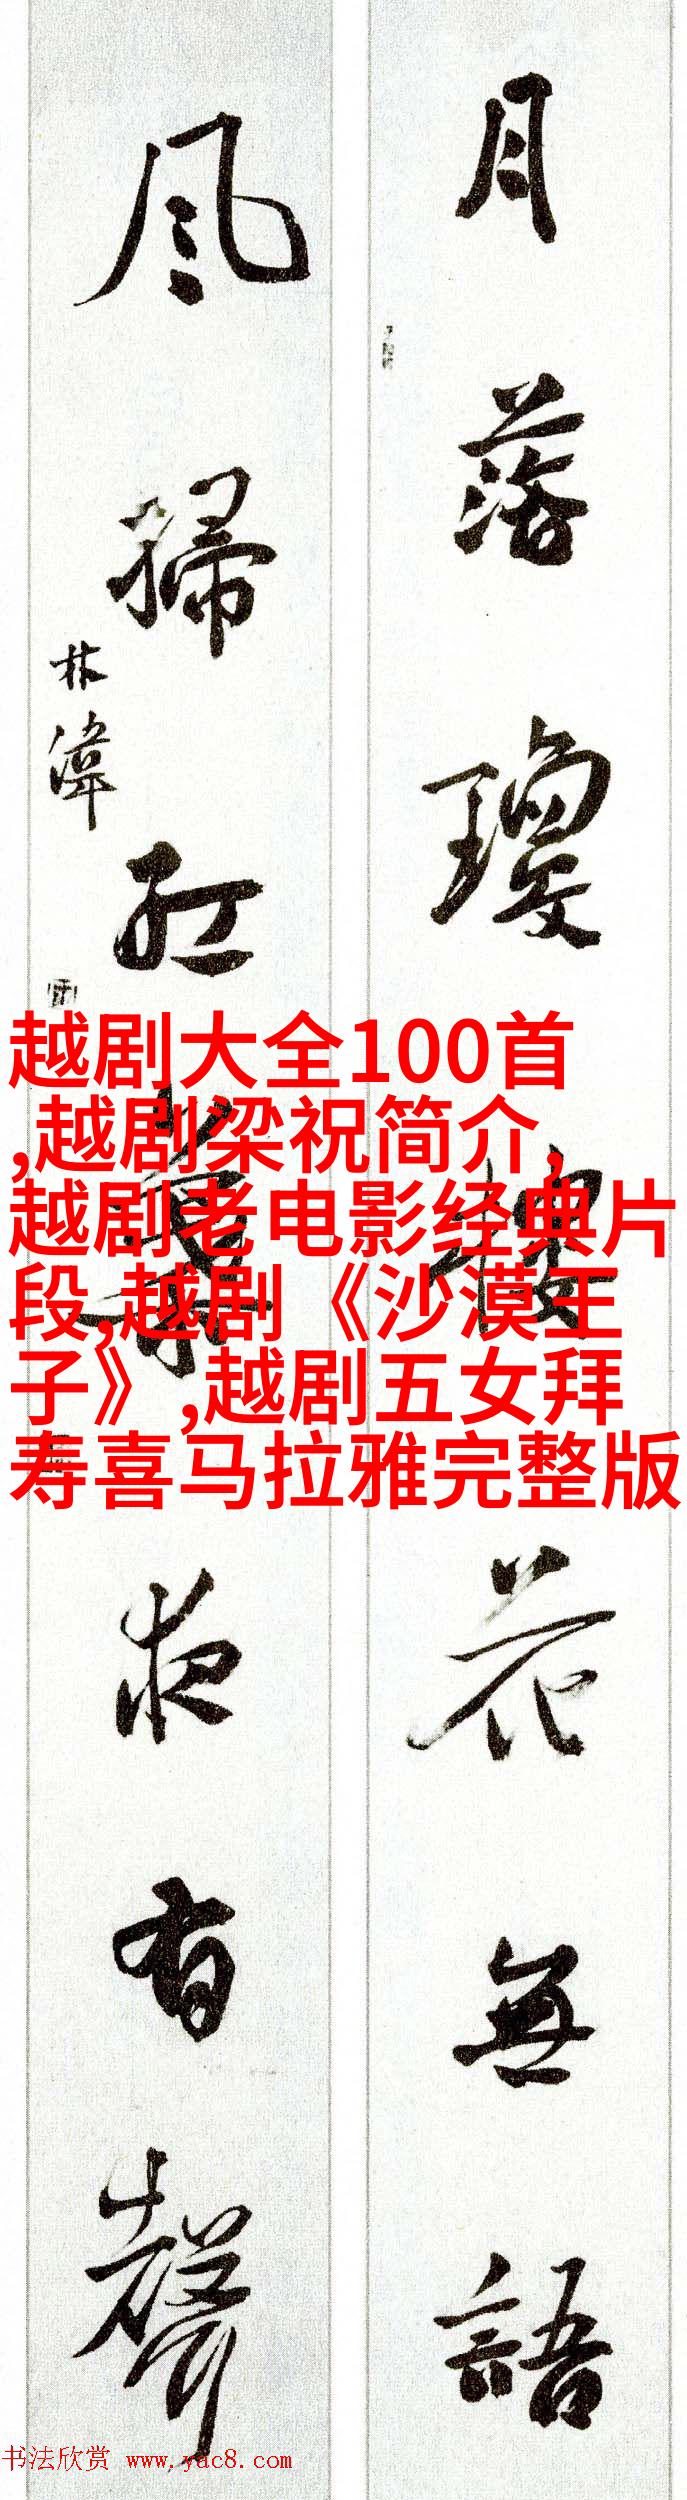 月落瓊樓花無語
風掃紅葉夜有聲
林偉
越剧大全100首
,越剧梁祝简介,
越剧老电影经典片
段,越剧《沙漠王
子》,越剧五女拜
寿喜马拉雅完整版
书法欣赏 www.yac8.com